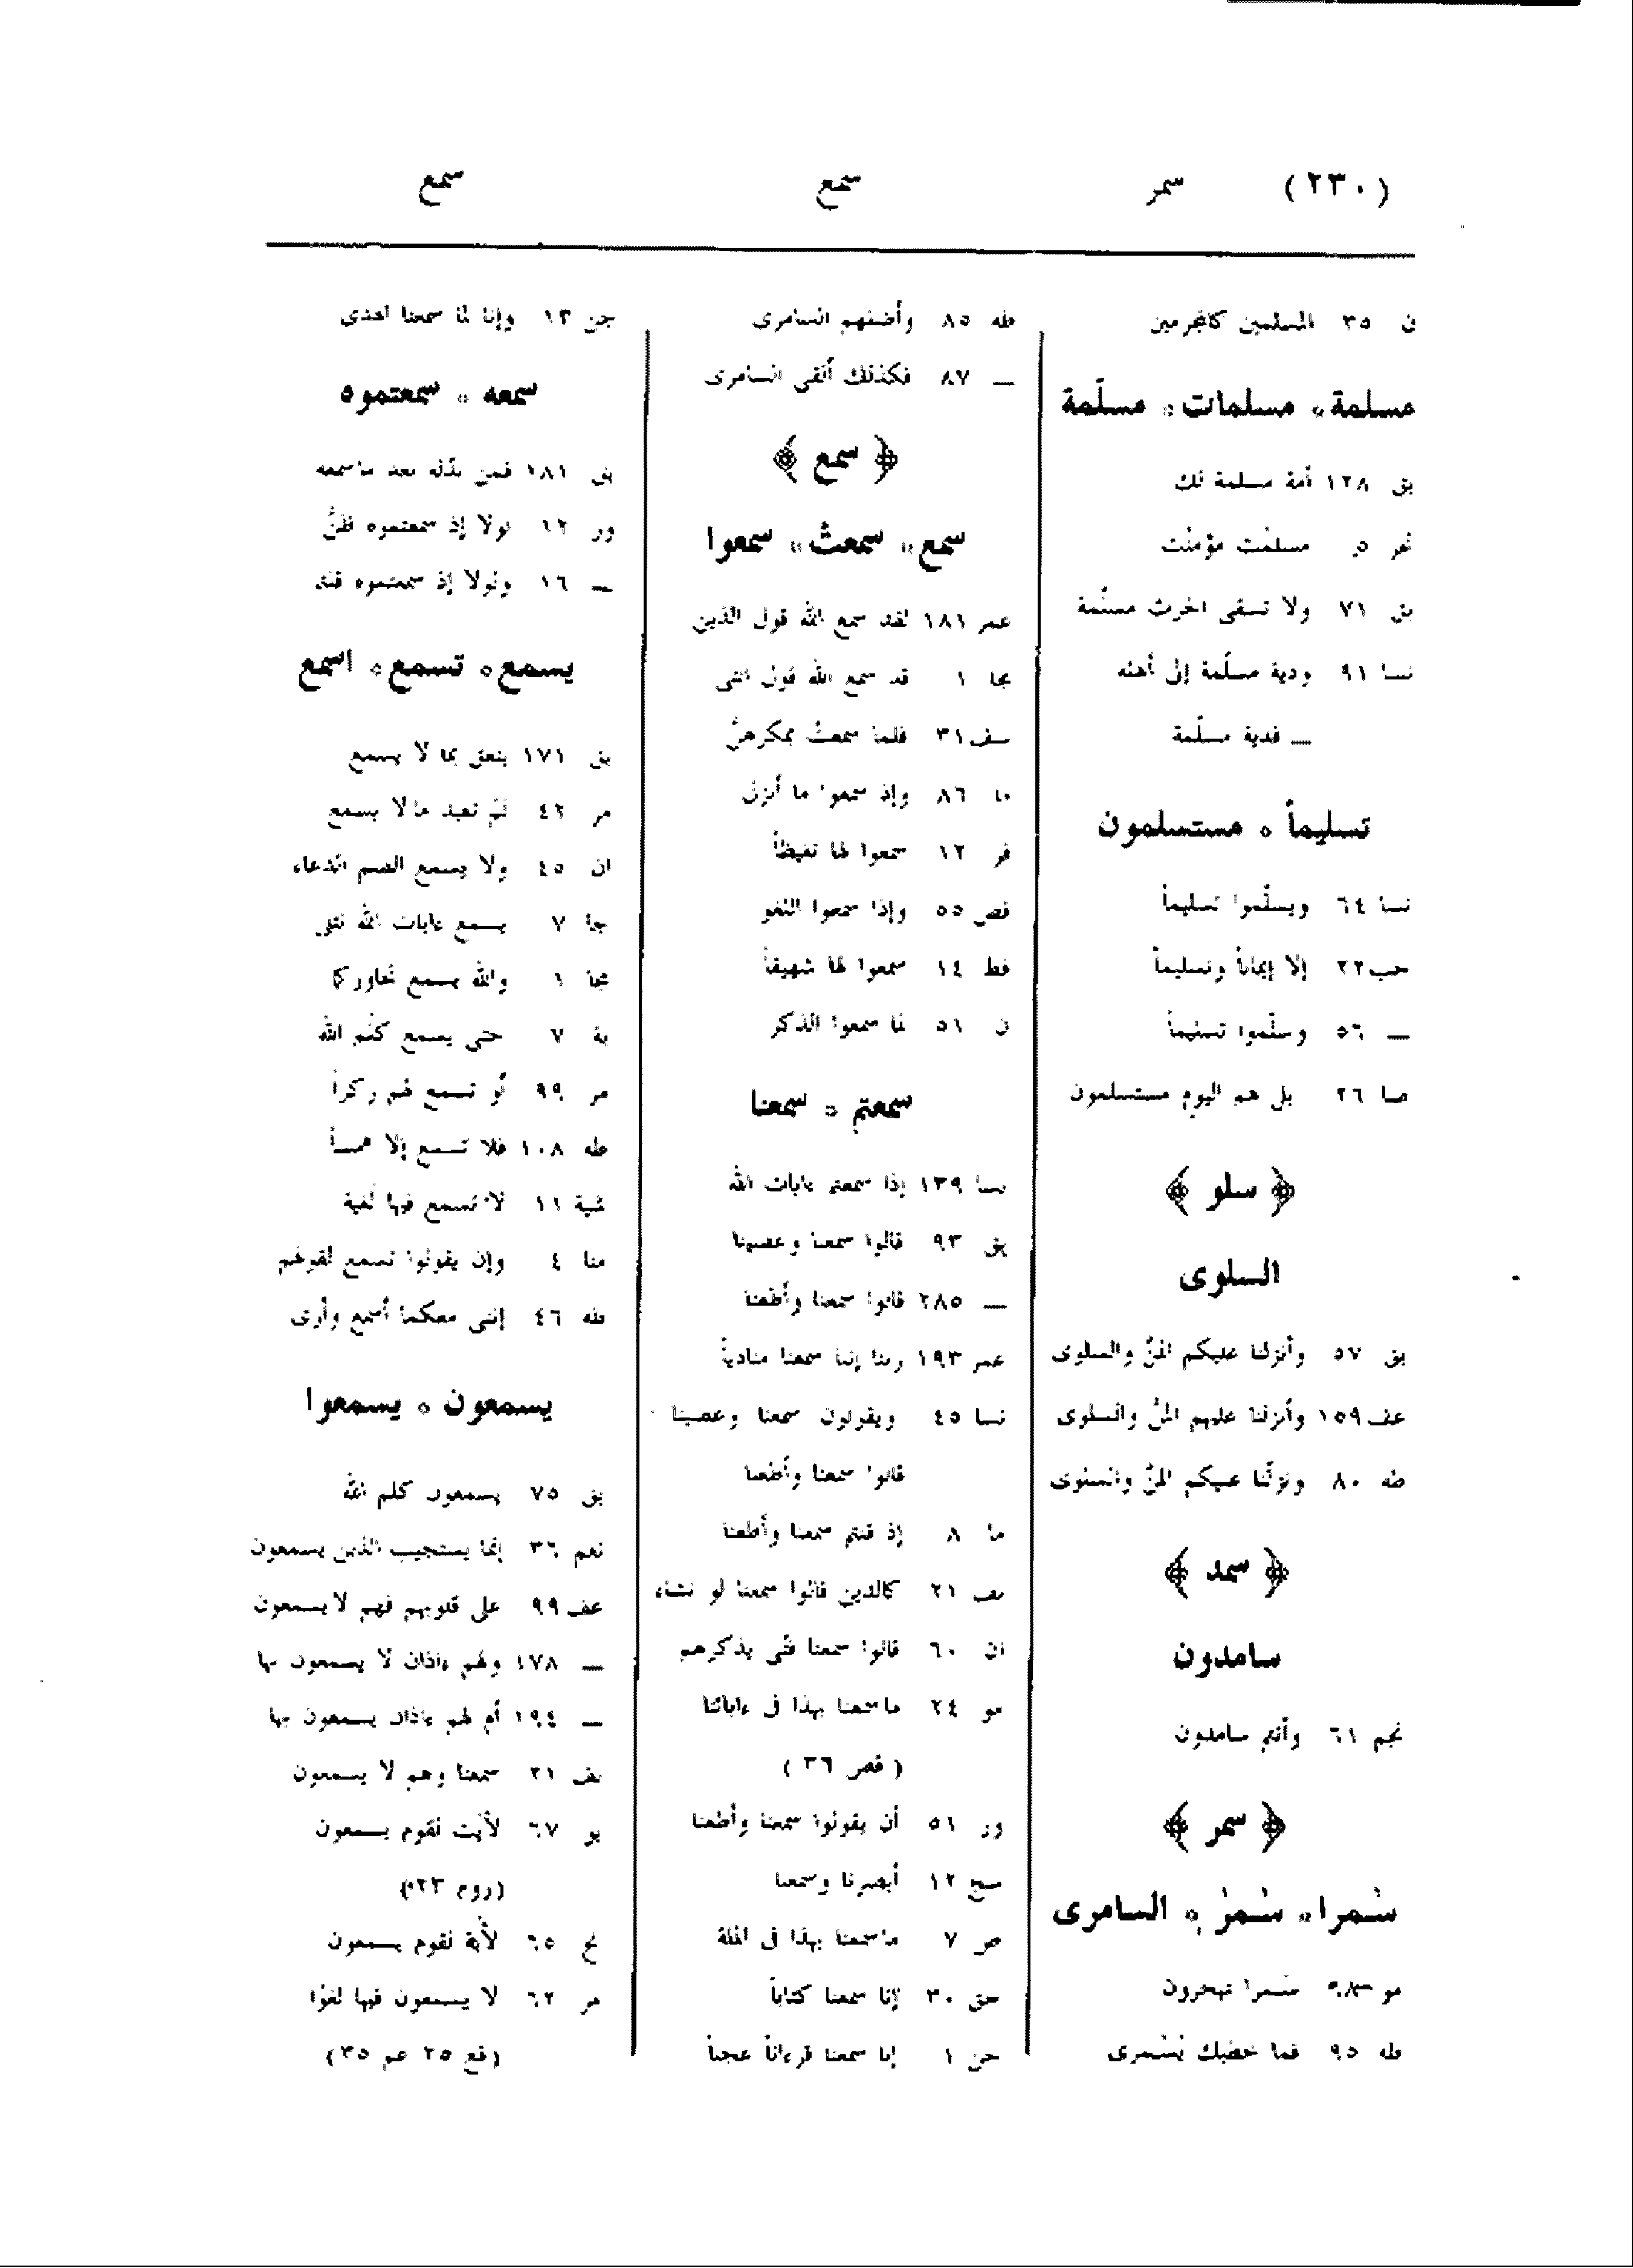 (٢٣٠) سمر سمع سمع
ن ٣٥ المسلمين كالمجرمين
مسلمة ، مسلمات ، مسلّمة
بق ١٢٨ أمة مسلمة لك
تمر ٥ مسلمٰت مؤمنٰت
بق ٧١ ولا تسقى الحرث مسلّمة
نسا ٩١ ودية مسلّمة إلى أهله
— فدية مسلّمة
تسليماً ، مستسلمون
نسا ٦٤ ويسلّموا تسليماً
حب ٢٢ إلا إيماناً وتسليماً
— ٥٦ وسلّموا تسليماً
صا ٢٦ بل هم اليوم مستسلمون
﴿ سلو ﴾
السلوى
بق ٥٧ وأنزلنا عليكم المنَّ والسلوى
عف ١٥٩ وأنزلنا عليهم المنَّ والسلوى
طه ٨٠ ونزلّنا عليكم المنَّ والسلوى
﴿ سمد ﴾
سامدون
نجم ٦١ وأنتم سامدون
﴿ سمر ﴾
سٰمرا ، سٰمرٰ ، السامرى
مو سٰمرا تهجرون
طه ٩٥ فما خطبك يٰسٰمرى
طه ٨٥ وأضلهم السامرى
— ٨٧ فكذلك ألقى السامرى
﴿ سمع ﴾
سمع ، سمعتْ ، سمعوا
عمر ١٨١ لقد سمع الله قول الذين
مجا ١ قد سمع الله قول التى
سف ٣١ فلما سمعتْ بمكرهنَّ
ما ٨٦ وإذ سمعوا ما أنزل
فر ١٢ سمعوا لها تغيظاً
قص ٥٥ وإذا سمعوا اللغو
سمعوا لها شهيقاً
ن ٥١ لما سمعوا الذكر
سمعتم ، سمعنا
نسا ١٣٩ إذا سمعتم ءايات الله
بق ٩٣ قالوا سمعنا وعصينا
— ٢٨٥ قالوا سمعنا وأطعنا
عمر ١٩٣ ربنا إننا سمعنا منادياً
نسا ٤٥ ويقولون سمعنا وعصينا
قالوا سمعنا وأطعنا
ما ٨ إذ قلتم سمعنا وأطعنا
نف ٢١ كالذين قالوا سمعنا لو نشاء
ان ٦٠ قالوا سمعنا فتًى يذكرهم
مو ٢٤ ماسمعنا بهذا فى ءابائنا
( قص ٣٦ )
ور ٥١ أن يقولوا سمعنا وأطعنا
سج ١٢ أبصرنا وسمعنا
ص ٧ ماسمعنا بهذا فى الملة
حق ٣٠ إنا سمعنا كتاباً
جن ١ إنا سمعنا قرءاناً عجباً
جن ١٣ وإنا لما سمعنا الهدى
سمعه ، سمعتموه
بق ١٨١ فمن بدّله بعد ماسمعه
ور ١٢ لولا إذ سمعتموه ظنَّ
— ١٦ ولولا إذ سمعتموه قلتم
يسمع ، تسمع ، اسمع
بق ١٧١ ينعق بما لا يسمع
مر ٤٢ لمَ تعبد مالا يسمع
ان ٤٥ ولا يسمع الصم الدعاء
جا ٧ يسمع ءايات الله تتلى
مجا ١ والله يسمع تحاوركما
بة ٧ حتى يسمع كلٰم الله
مر ٩٩ أو تسمع لهم ركزاً
طه ١٠٨ فلا تسمع إلا همساً
غشية ١١ لا تسمع فيها لٰغية
منا ٤ وإن يقولوا تسمع لقولهم
طه ٤٦ إننى معكما أسمع وأرى
يسمعون ، يسمعوا
بق ٧٥ يسمعون كلم الله
نعم ٣٦ إنما يستجيب الذين يسمعون
عف ٩٩ على قلوبهم فهم لا يسمعون
— ١٧٨ ولهم ءاذان لا يسمعون بها
— ١٩٤ أم لهم ءاذان يسمعون بها
نف ٢١ سمعنا وهم لا يسمعون
يو ٦٧ لأيٰت لقوم يسمعون
(روم ٢٣)
نح ٦٥ لأية لقوم يسمعون
مر ٦٢ لا يسمعون فيها لغوًا
(قع ٢٥ عم ٣٥)